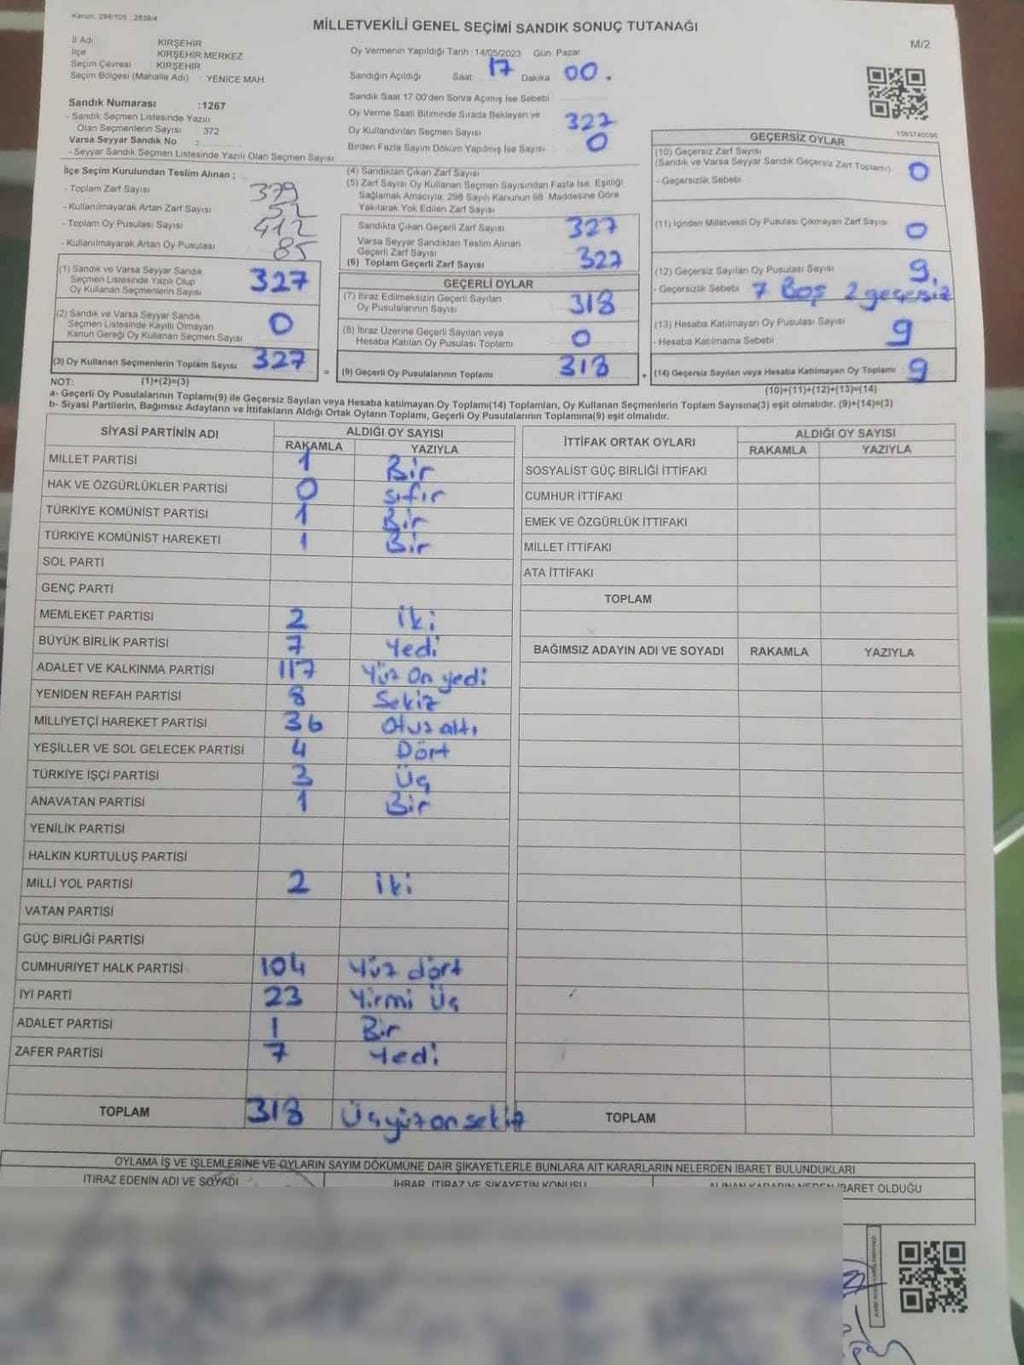 Kanun: 298/105 , 2839/4
MİLLETVEKİLİ GENEL SEÇİMİ SANDIK SONUÇ TUTANAĞI
M/2
İl Adı KIRŞEHİR
İlçe KIRŞEHİR MERKEZ
Seçim Çevresi KIRŞEHİR
Seçim Bölgesi (Mahalle Adı) : YENİCE MAH.
Oy Vermenin Yapıldığı Tarih :14/05/2023 Gün Pazar
Sandığın Açıldığı Saat 17 Dakika 00.
Sandık Saat 17.00'den Sonra Açılmış İse Sebebi
Oy Verme Saati Bitiminde Sırada Bekleyen ve
Oy Kullandırılan Seçmen Sayısı 327
Birden Fazla Sayım Döküm Yapılmış İse Sayısı 0
Sandık Numarası :1267
- Sandık Seçmen Listesinde Yazılı
Olan Seçmenlerin Sayısı 372
Varsa Seyyar Sandık No :
- Seyyar Sandık Seçmen Listesinde Yazılı Olan Seçmen Sayısı
İlçe Seçim Kurulundan Teslim Alınan ;
- Toplam Zarf Sayısı 379
- Kullanılmayarak Artan Zarf Sayısı 52
- Toplam Oy Pusulası Sayısı 412
- Kullanılmayarak Artan Oy Pusulası 85
(1) Sandık ve Varsa Seyyar Sandık
Seçmen Listesinde Yazılı Olup
Oy Kullanan Seçmenlerin Sayısı 327
(2) Sandık ve Varsa Seyyar Sandık
Seçmen Listesinde Kayıtlı Olmayan
Kanun Gereği Oy Kullanan Seçmen Sayısı 0
(3) Oy Kullanan Seçmenlerin Toplam Sayısı 327
(4) Sandıktan Çıkan Zarf Sayısı
(5) Zarf Sayısı Oy Kullanan Seçmen Sayısından Fazla İse, Eşitliği
Sağlamak Amacıyla, 298 Sayılı Kanunun 98. Maddesine Göre
Yakılarak Yok Edilen Zarf Sayısı
Sandıkta Çıkan Geçerli Zarf Sayısı 327
Varsa Seyyar Sandıktan Teslim Alınan
Geçerli Zarf Sayısı
(6) Toplam Geçerli Zarf Sayısı 327
GEÇERLİ OYLAR
(7) İtiraz Edilmeksizin Geçerli Sayılan
Oy Pusulalarının Sayısı 318
(8) İtiraz Üzerine Geçerli Sayılan veya
Hesaba Katılan Oy Pusulası Toplamı 0
= (9) Geçerli Oy Pusulalarının Toplamı 318
GEÇERSİZ OYLAR
(10) Geçersiz Zarf Sayısı
(Sandık ve Varsa Seyyar Sandık Geçersiz Zarf Toplamı) 0
- Geçersizlik Sebebi
(11) İçinden Milletvekili Oy Pusulası Çıkmayan Zarf Sayısı 0
(12) Geçersiz Sayılan Oy Pusulası Sayısı 9.
- Geçersizlik Sebebi 7 Boş 2 geçersiz
(13) Hesaba Katılmayan Oy Pusulası Sayısı 9
- Hesaba Katılmama Sebebi
+ (14) Geçersiz Sayılan veya Hesaba Katılmayan Oy Toplamı 9
NOT: (1)+(2)=(3)
(10)+(11)+(12)+(13)=(14)
a- Geçerli Oy Pusulalarının Toplamı(9) ile Geçersiz Sayılan veya Hesaba katılmayan Oy Toplamı(14) Toplamları, Oy Kullanan Seçmenlerin Toplam Sayısına(3) eşit olmalıdır. (9)+(14)=(3)
b- Siyasi Partilerin, Bağımsız Adayların ve İttifakların Aldığı Ortak Oyların Toplamı, Geçerli Oy Pusulalarının Toplamına(9) eşit olmalıdır.
SİYASİ PARTİNİN ADI ALDIĞI OY SAYISI
RAKAMLA YAZIYLA
MİLLET PARTİSİ 1 Bir
HAK VE ÖZGÜRLÜKLER PARTİSİ 0 sıfır
TÜRKİYE KOMÜNİST PARTİSİ 1 Bir
TÜRKİYE KOMÜNİST HAREKETİ 1 Bir
SOL PARTİ
GENÇ PARTİ
MEMLEKET PARTİSİ 2 iki
BÜYÜK BİRLİK PARTİSİ 7 Yedi
ADALET VE KALKINMA PARTİSİ 117 Yüz On yedi
YENİDEN REFAH PARTİSİ 8 Sekiz
MİLLİYETÇİ HAREKET PARTİSİ 36 Otuz altı
YEŞİLLER VE SOL GELECEK PARTİSİ 4 Dört
TÜRKİYE İŞÇİ PARTİSİ 3 Üç
ANAVATAN PARTİSİ 1 Bir
YENİLİK PARTİSİ
HALKIN KURTULUŞ PARTİSİ
MİLLİ YOL PARTİSİ 2 iki
VATAN PARTİSİ
GÜÇ BİRLİĞİ PARTİSİ
CUMHURİYET HALK PARTİSİ 104 Yüz dört
İYİ PARTİ 23 Yirmi Üç
ADALET PARTİSİ 1 Bir
ZAFER PARTİSİ 7 Yedi
TOPLAM 318 Üçyüz on sekiz
İTTİFAK ORTAK OYLARI ALDIĞI OY SAYISI
RAKAMLA YAZIYLA
SOSYALİST GÜÇ BİRLİĞİ İTTİFAKI
CUMHUR İTTİFAKI
EMEK VE ÖZGÜRLÜK İTTİFAKI
MİLLET İTTİFAKI
ATA İTTİFAKI
TOPLAM
BAĞIMSIZ ADAYIN ADI VE SOYADI RAKAMLA YAZIYLA
TOPLAM
OYLAMA İŞ VE İŞLEMLERİNE VE OYLARIN SAYIM DÖKÜMÜNE DAİR ŞİKAYETLERLE BUNLARA AİT KARARLARIN NELERDEN İBARET BULUNDUKLARI
İTİRAZ EDENİN ADI VE SOYADI İHBAR, İTİRAZ VE ŞİKAYETİN KONUSU ALINAN KARARIN NEDEN İBARET OLDUĞU